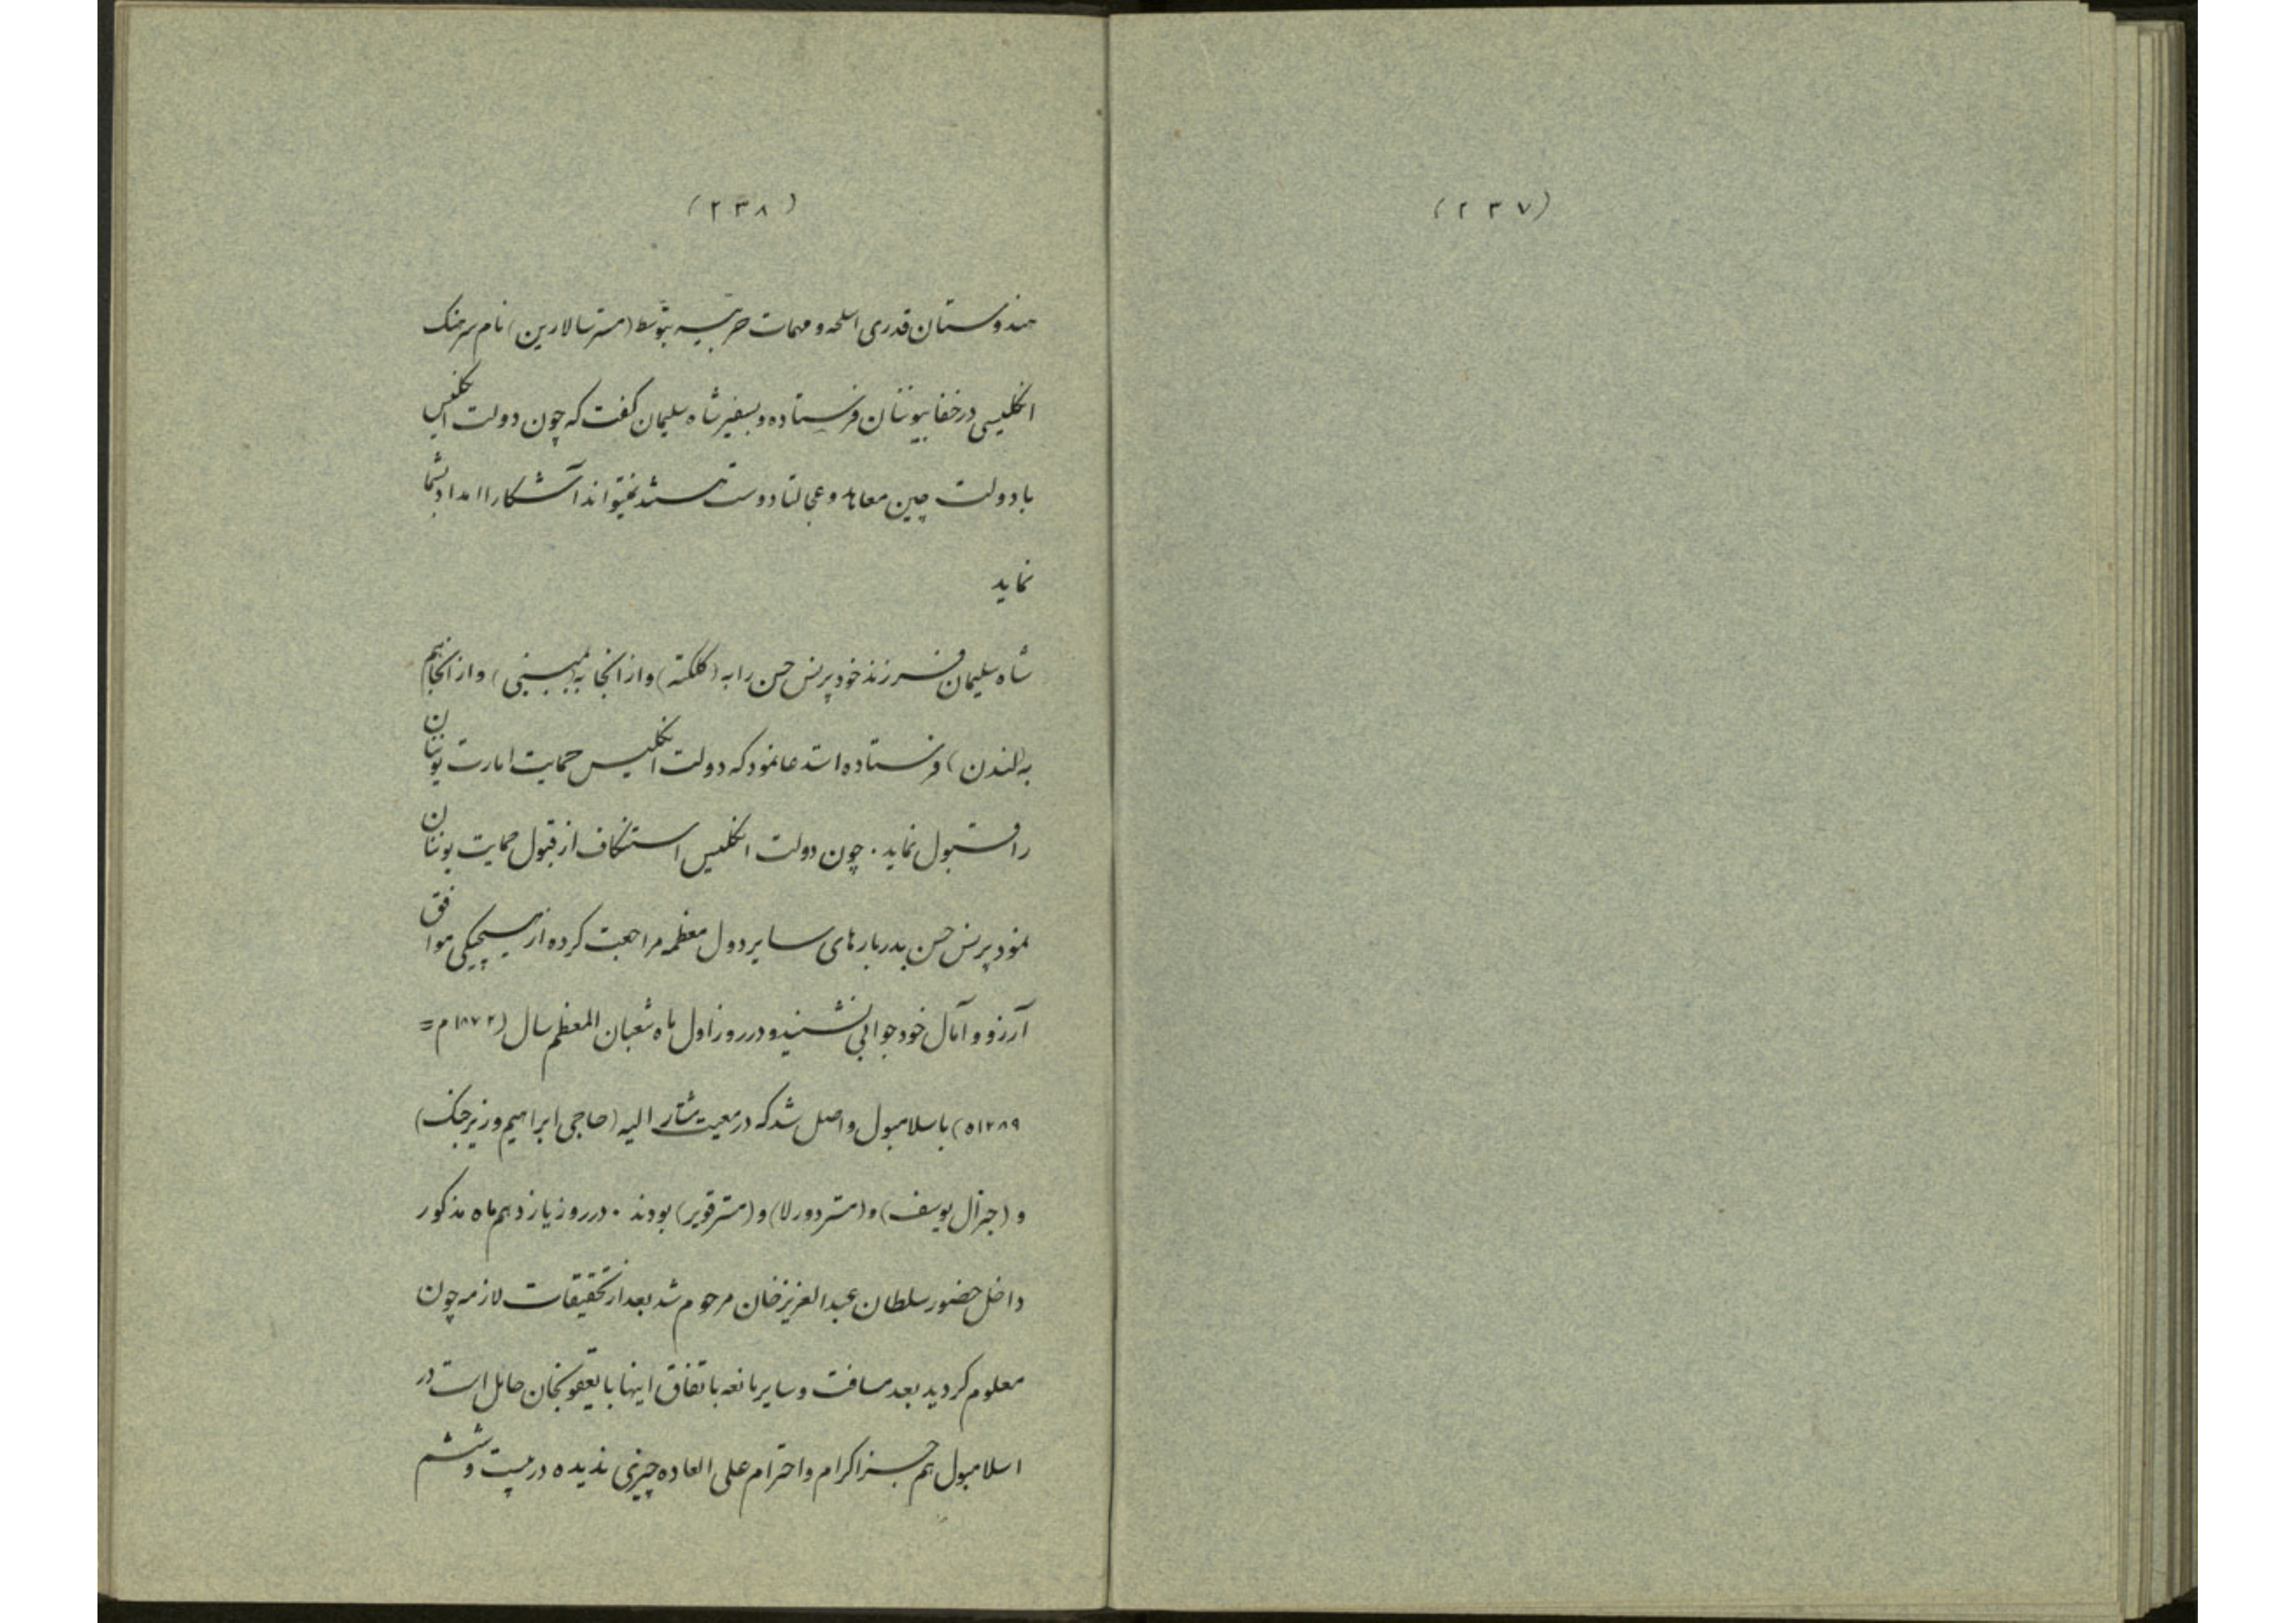 (۲۳۷)
(۲۳۸)
هندوستان قدری اسلحه و مهمات حربیه بتوسط (مسترسالارین) نام سرهنک
انکلیسی در خفا بیوننان فرستاده و بسفیر شاه سلیمان کفت که چون دولت انکلیس
با دولت چین معاهد و عجالتا دوست هستند نمیتواند آشکارا امداد بشما
نماید
شاه سلیمان فرزند خود پرنس حسن را به (کلکته) و از انجا به (بمبئی) و از انجا هم
به (لندن) فرستاده استدعا نمود که دولت انکلیس حمایت امارت یوننان
را قبول نماید . چون دولت انکلیس استنکاف از قبول حمایت یوننان
نمود پرنس حسن بدربارهای سایر دول معظمه مراجعت کرده از هیچیکی موافق
آرزو و آمال خود جوابی نشنید و در روز اول ماه شعبان المعظم سال (۱۸۷۲ م =
۱۲۸۹ ه) باسلامبول واصل شد که در معیت مشار الیه (حاجی ابراهیم وزیر جنک)
و (جنرال یوسف) و (مستر دورلا) و (مستر قویر) بودند . در روز یازدهم ماه مذکور
داخل حضور سلطان عبدالعزیز خان مرحوم شد بعد از تحقیقات لازمه چون
معلوم کردید بعد مسافت و سایر مانعه باتفاق اینها با یعقوبخان حائل است در
اسلامبول هم جز اکرام و احترام علی العاده چیزی ندیده در بیست و ششم